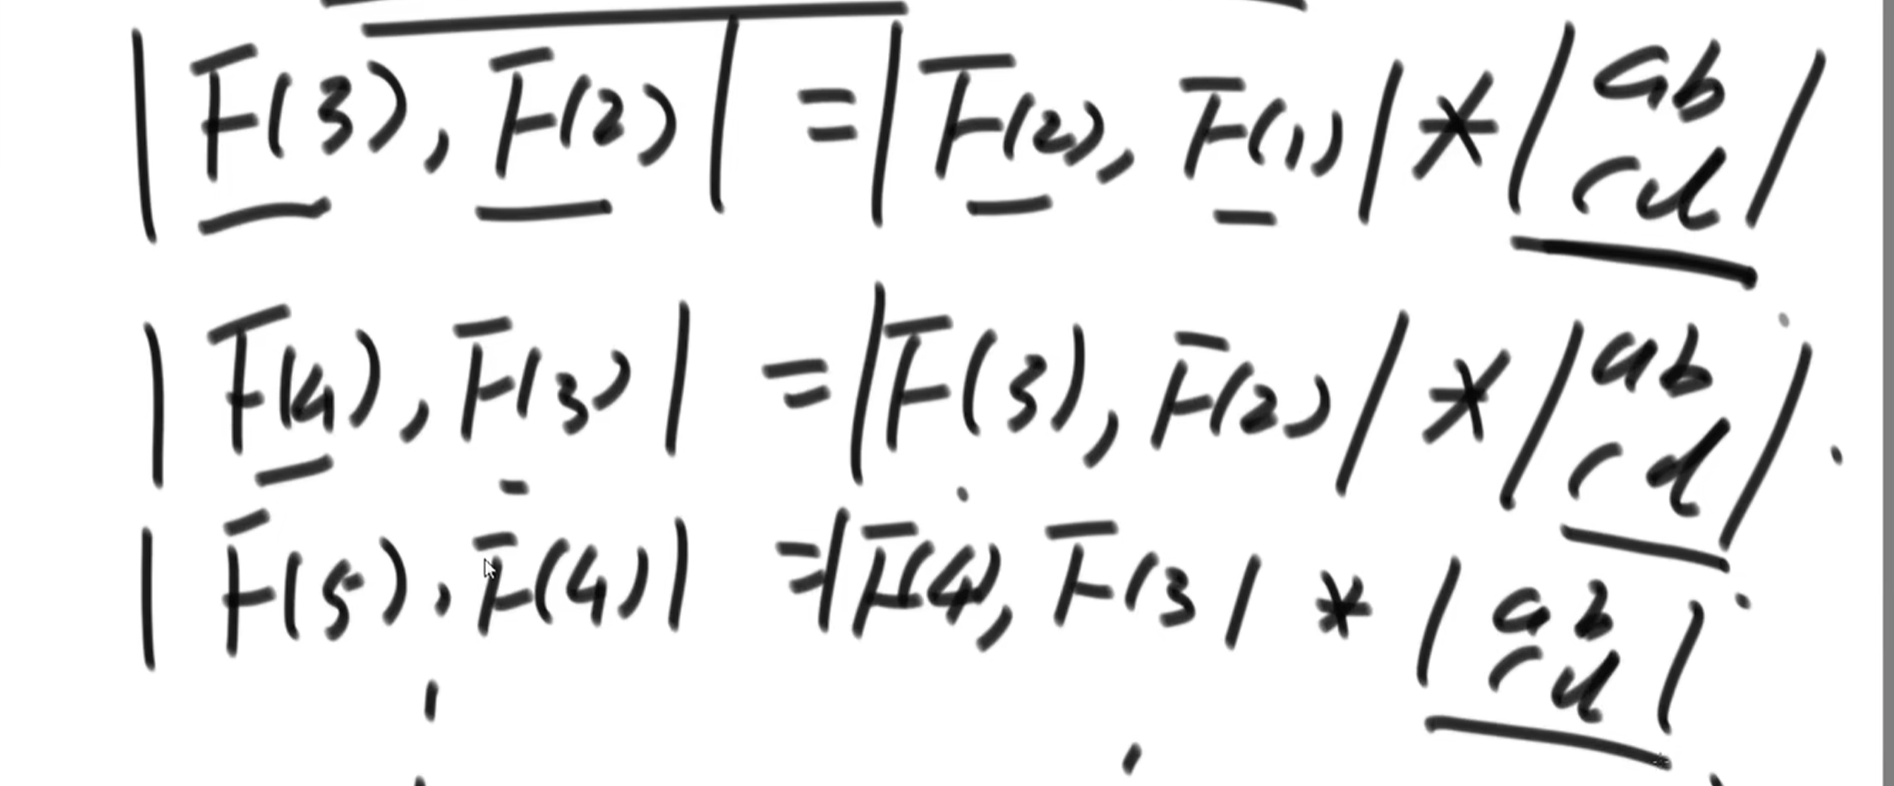 | F(3), F(2) | = | F(2), F(1) | * | a b
c d |
| F(4), F(3) | = | F(3), F(2) | * | a b
c d |
| F(5), F(4) | = | F(4), F(3 | * | a b
c d |